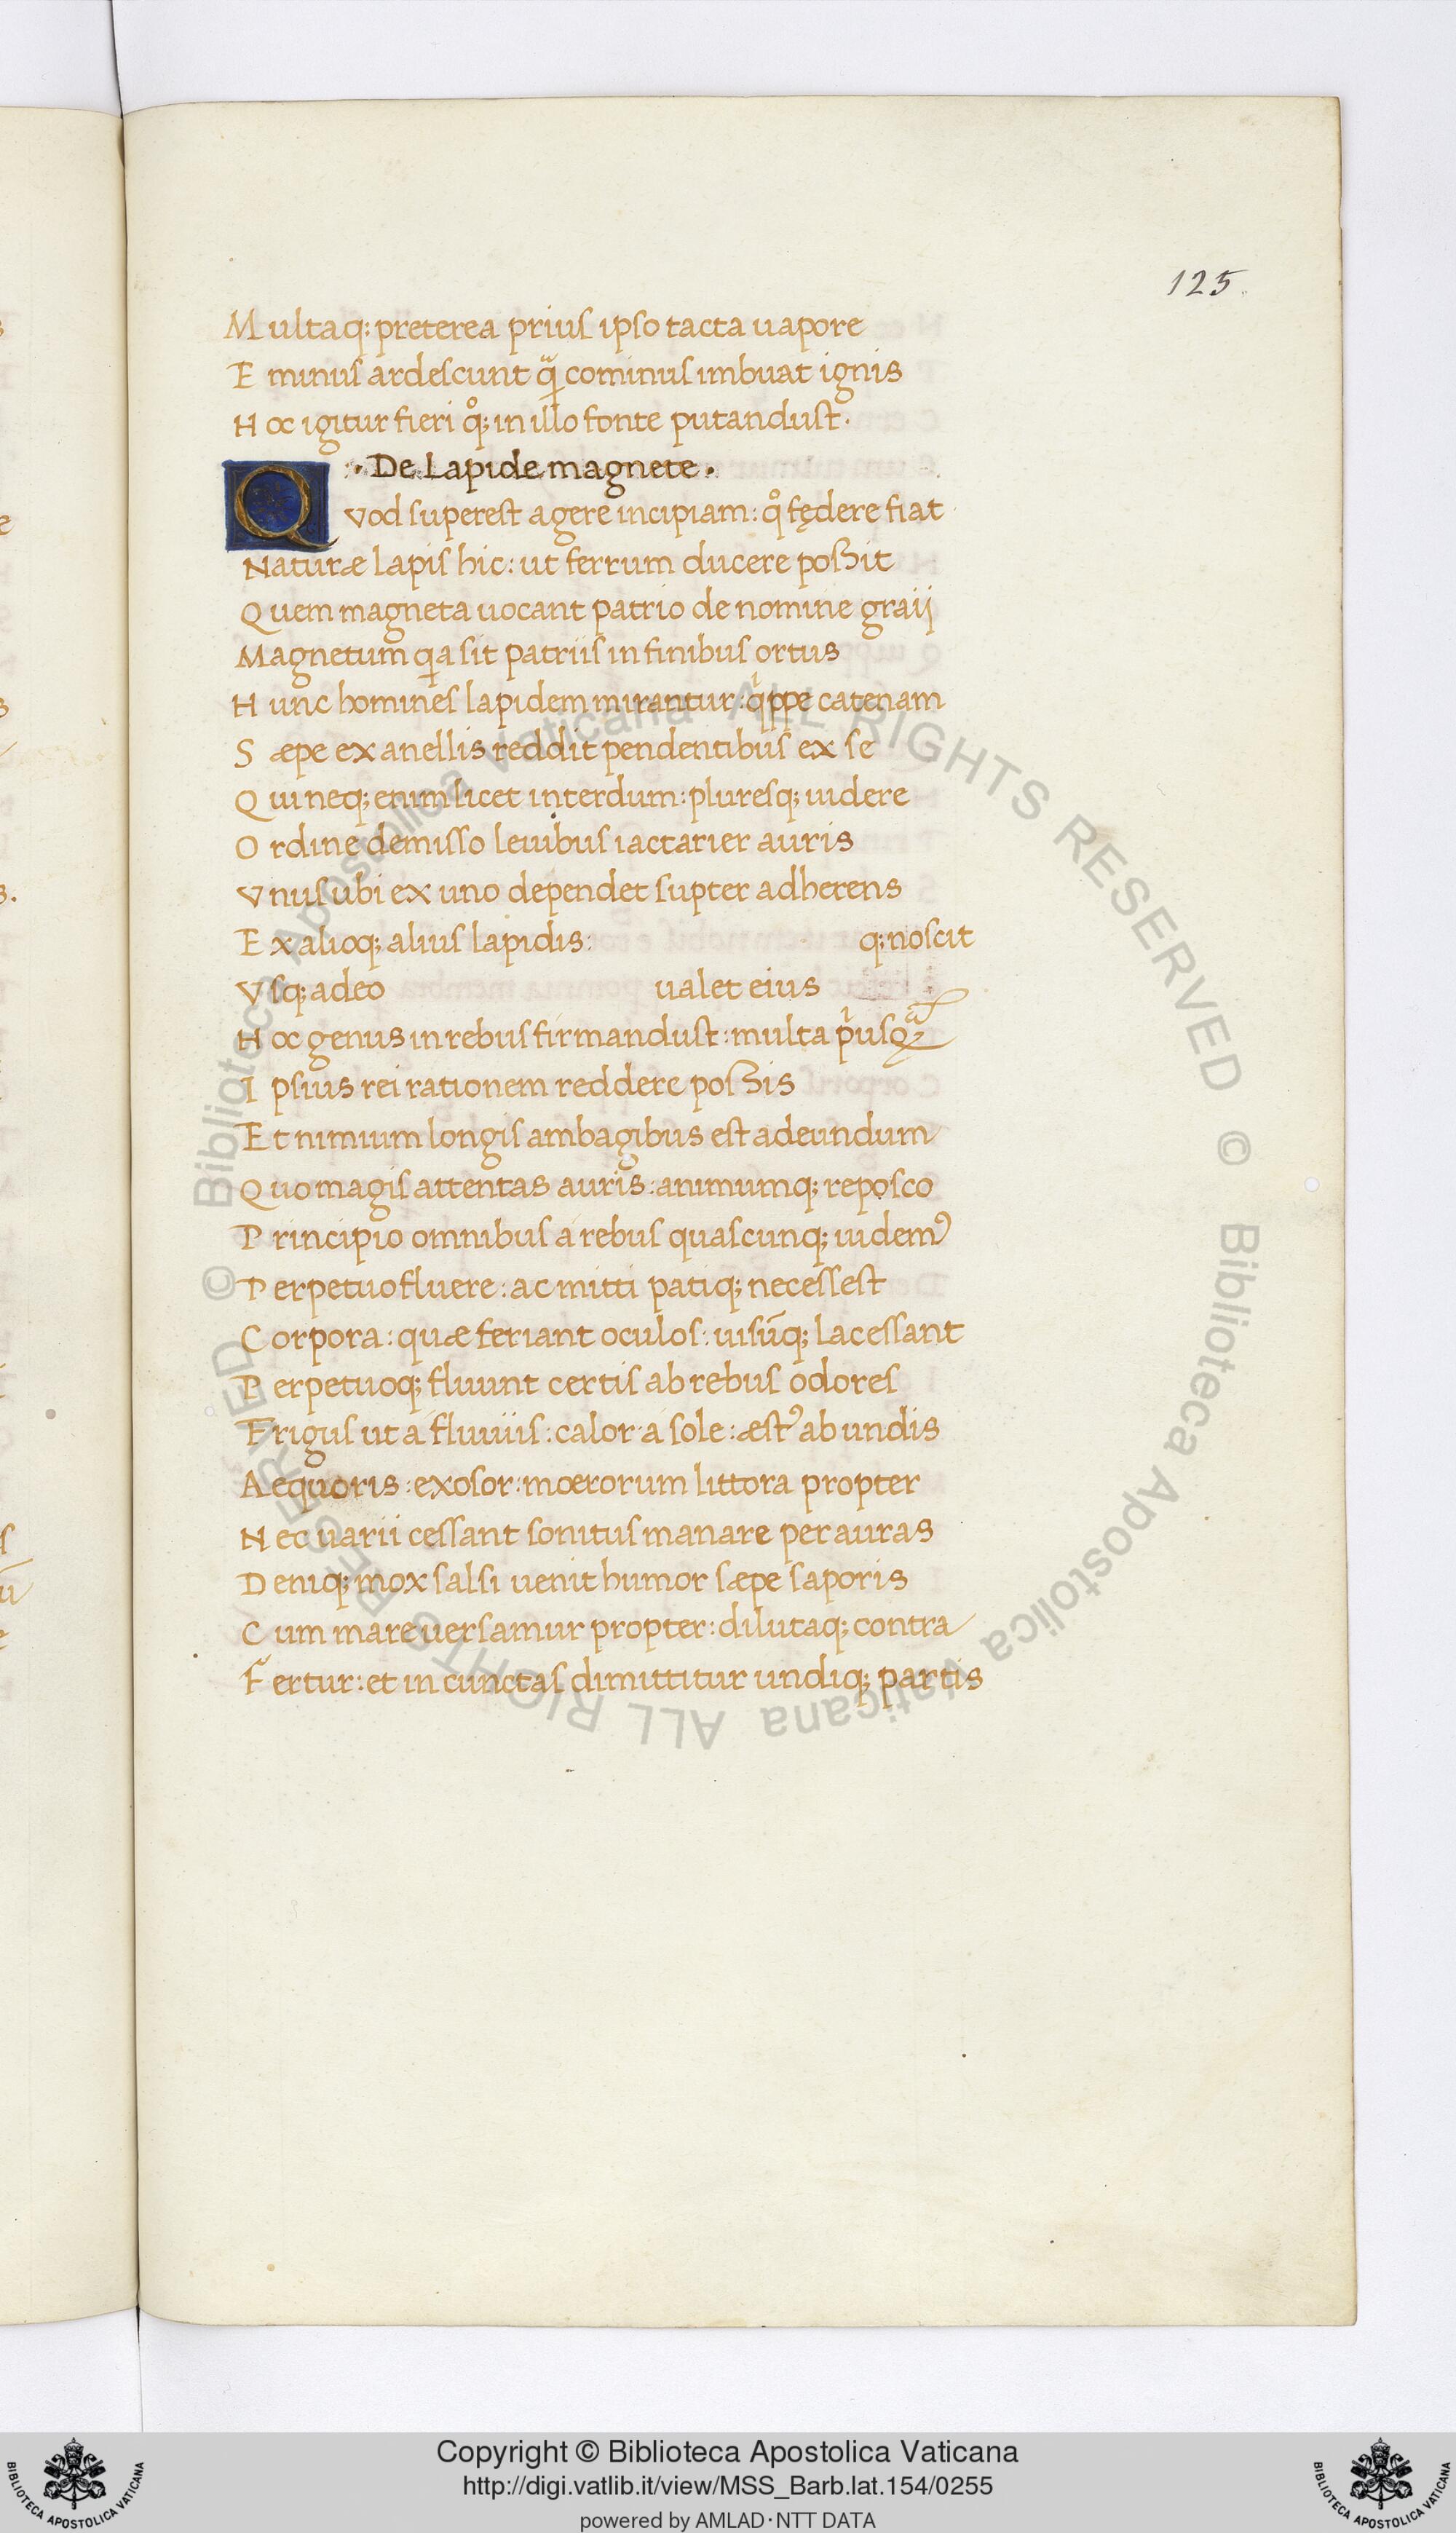 125.
Multaq; preterea prius ipso tacta uapore
Eminus ardescunt qͣ̃ cominus imbuat ignis
Hoc igitur fieri qͦ; in illo fonte putandust.
· De Lapide magnete ·
Quod superest agere incipiam: qͦ fędere fiat
Naturæ lapis hic: ut ferrum ducere possit
Quem magneta uocant patrio de nomine graij
Magnetum qa sit patriis in finibus ortus
Hunc homines lapidem mirantur: qͥppe catenam
Sæpe ex anellis reddit pendentibus ex se
Quineq; enim licet interdum: pluresq; uidere
Ordine demisso leuibus iactarier auris
Vnus ubi ex uno dependet supter adherens
Ex alioq; alius lapidis: q; noscit
Vsq; adeo ualet eius
Hoc genus in rebus firmandust: multa pͥusqͣ
Ipsius rei rationem reddere possis
Et nimium longis ambagibus est adeundum
Quo magis attentas auris: animumq; reposco
Principio omnibus á rebus quascunq; uidemꝰ
Perpetuo fluere: ac mitti patiq; necessest
Corpora: quæ feriant oculos: uisūq; lacessant
Perpetuoq; fluunt certis ab rebus odores
Frigus ut á fluuiis: calor á sole: æstꝰ ab undis
Aequoris: exosor: mœrorum littora propter
Nec uarii cessant sonitus manare per auras
Deniq; mox salsi uenit humor sæpe saporis
Cum mare uersamur propter: dilutaq; contra
Fertur: et in cunctas dimittitur undiq; partis
© Biblioteca Apostolica Vaticana ALL RIGHTS RESERVED © Biblioteca Apostolica Vaticana ALL RIGHTS RESERVED
BIBLIOTECA APOSTOLICA VATICANA
Copyright © Biblioteca Apostolica Vaticana
http://digi.vatlib.it/view/MSS_Barb.lat.154/0255
powered by AMLAD·NTT DATA
BIBLIOTECA APOSTOLICA VATICANA